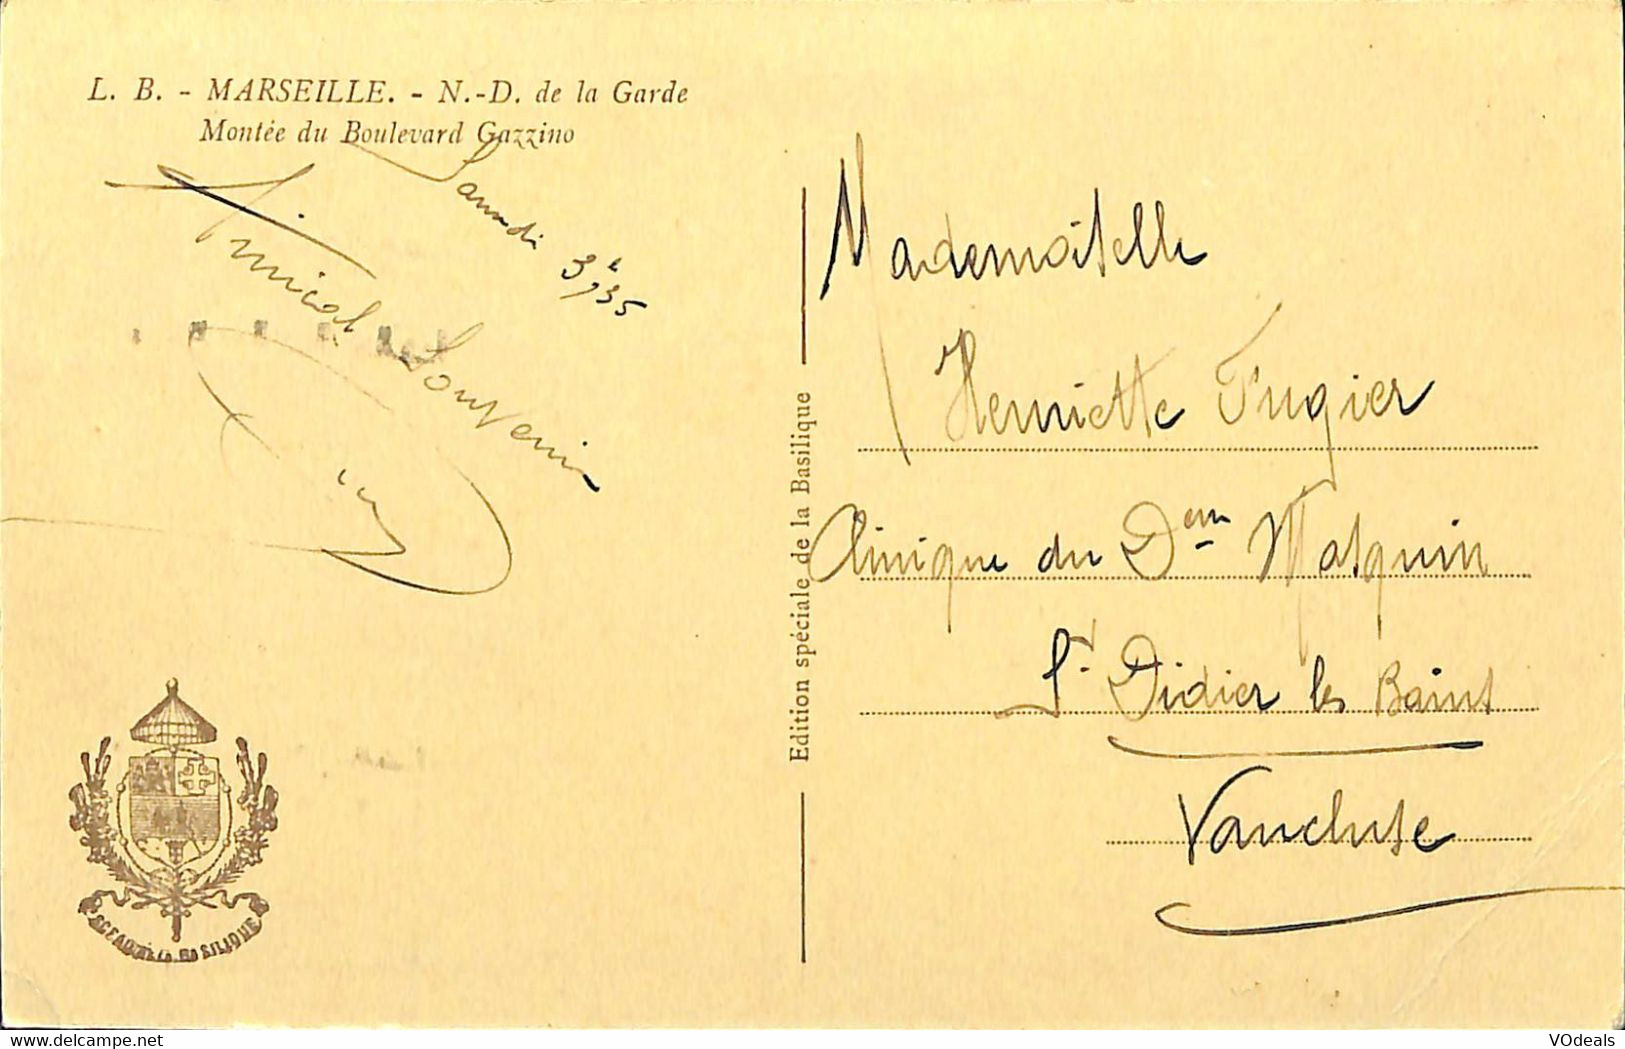 L. B. - MARSEILLE. - N.-D. de la Garde
Montée du Boulevard Gazzino
Samedi
Amical
Souvenir
Edition spéciale de la Basilique
Mademoiselle
Henriette Fugier
Clinique du Masquin
St Didier les Bains
Vaucluse
VOdeals